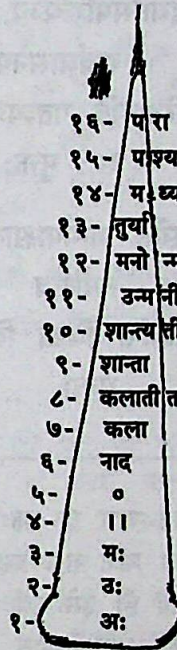 १६- परा
१५- पश्य
१४- मध्य
१३- तुर्या
१२- मनोन्म
११- उन्मनी
१०- शान्त्यती
९- शान्ता
८- कलातीत
७- कला
६- नाद
५- ०
४- ॥
३- मः
२- उः
१- अः